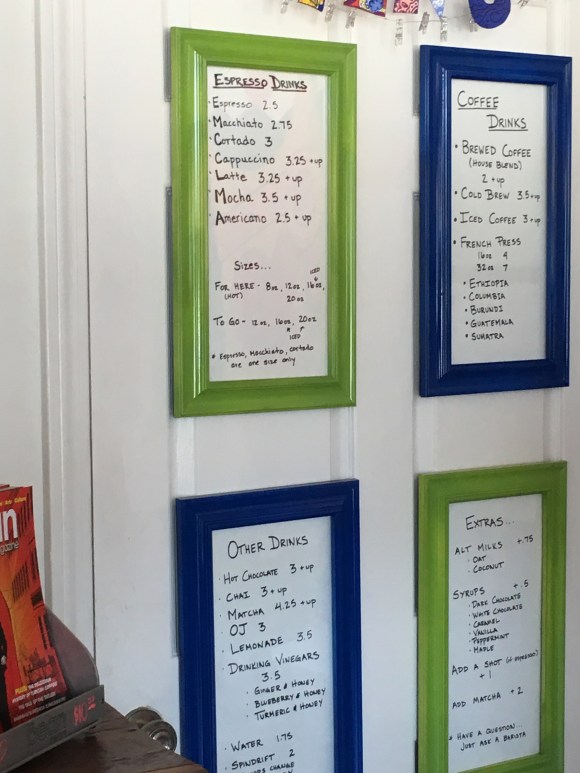 ESPRESSO DRINKS
• Espresso 2.5
• Macchiato 2.75
• Cortado 3
• Cappuccino 3.25 + up
• Latte 3.25 + up
• Mocha 3.5 + up
• Americano 2.5 + up
Sizes...
ICED
FOR HERE - 8oz, 12oz, 16oz,
(HOT)
20oz
TO GO - 12oz, 16oz, 20oz
ICED
* Espresso, Macchiato, cortado
are one size only
COFFEE
DRINKS
• BREWED COFFEE
(HOUSE BLEND)
2 + up
• COLD BREW 3.5 + up
• ICED COFFEE 3 + up
• FRENCH PRESS
16oz 4
32oz 7
• ETHIOPIA
• COLUMBIA
• BURUNDI
• GUATEMALA
• SUMATRA
OTHER DRINKS
• HOT CHOCOLATE 3 + up
• CHAI 3 + up
• MATCHA 4.25 + up
• OJ 3
• LEMONADE 3.5
• DRINKING VINEGARS
3.5
• GINGER & HONEY
• BLUEBERRY & HONEY
• TURMERIC & HONEY
• WATER 1.75
• SPINDRIFT 2
CHANGE
EXTRAS...
ALT MILKS +.75
• OAT
• COCONUT
SYRUPS +.5
• DARK CHOCOLATE
• WHITE CHOCOLATE
• CARAMEL
• VANILLA
• PEPPERMINT
• MAPLE
ADD A SHOT (of espresso)
+ 1
ADD MATCHA + 2
* HAVE A QUESTION...
JUST ASK A BARISTA